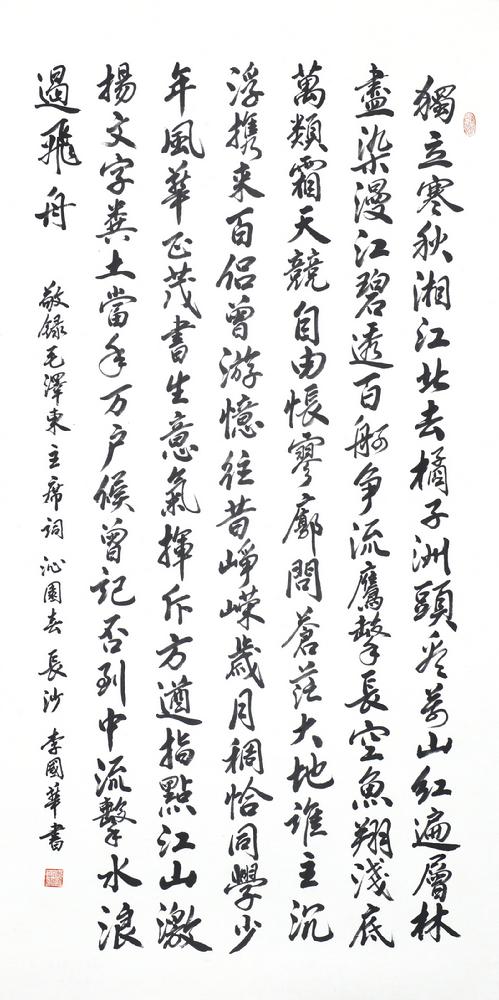 獨立寒秋湘江北去橘子洲頭看萬山紅遍層林
盡染漫江碧透百舸争流鷹擊長空魚翔淺底
萬類霜天競自由悵寥廓問蒼茫大地誰主沉
浮携来百侣曾游憶往昔崢嶸歲月稠恰同學少
年風華正茂書生意氣揮斥方遒指點江山激
揚文字糞土當年万户侯曾記否到中流擊水浪
遏飛舟
敬録毛澤東主席詞 沁園春 長沙 李國華書